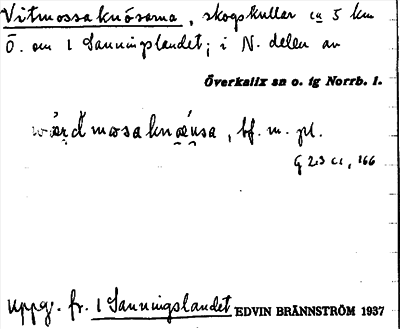 Vitmossaknösarna, skogskullar ca 5 km
Ö. om 1 Sanningslandet; i N. delen av
Överkalix sn o. tg Norrb. l.
mosaknœ́nsa, bf. m. pl.
G 23 c1, 166
Uppg. fr. 1 Sanningslandet EDVIN BRÄNNSTRÖM 1937